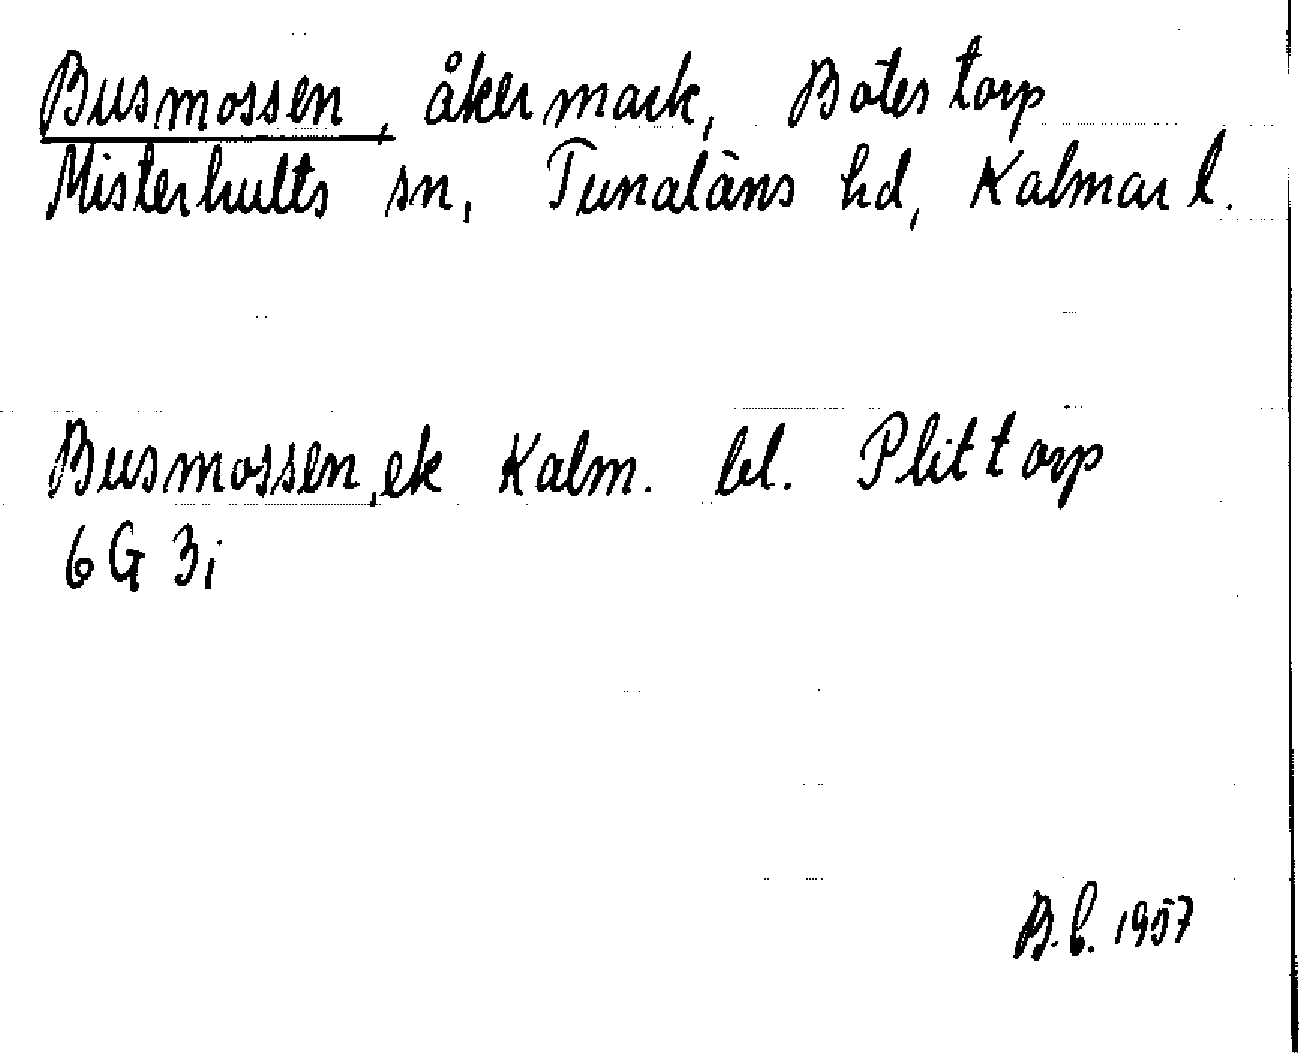 Busmossen, åkermark, Botestorp
Misterhults sn, Tunaläns hd, Kalmar l.
Busmossen, ek Kalm. bl. Plittorp
6G 3i
B.b. 1957